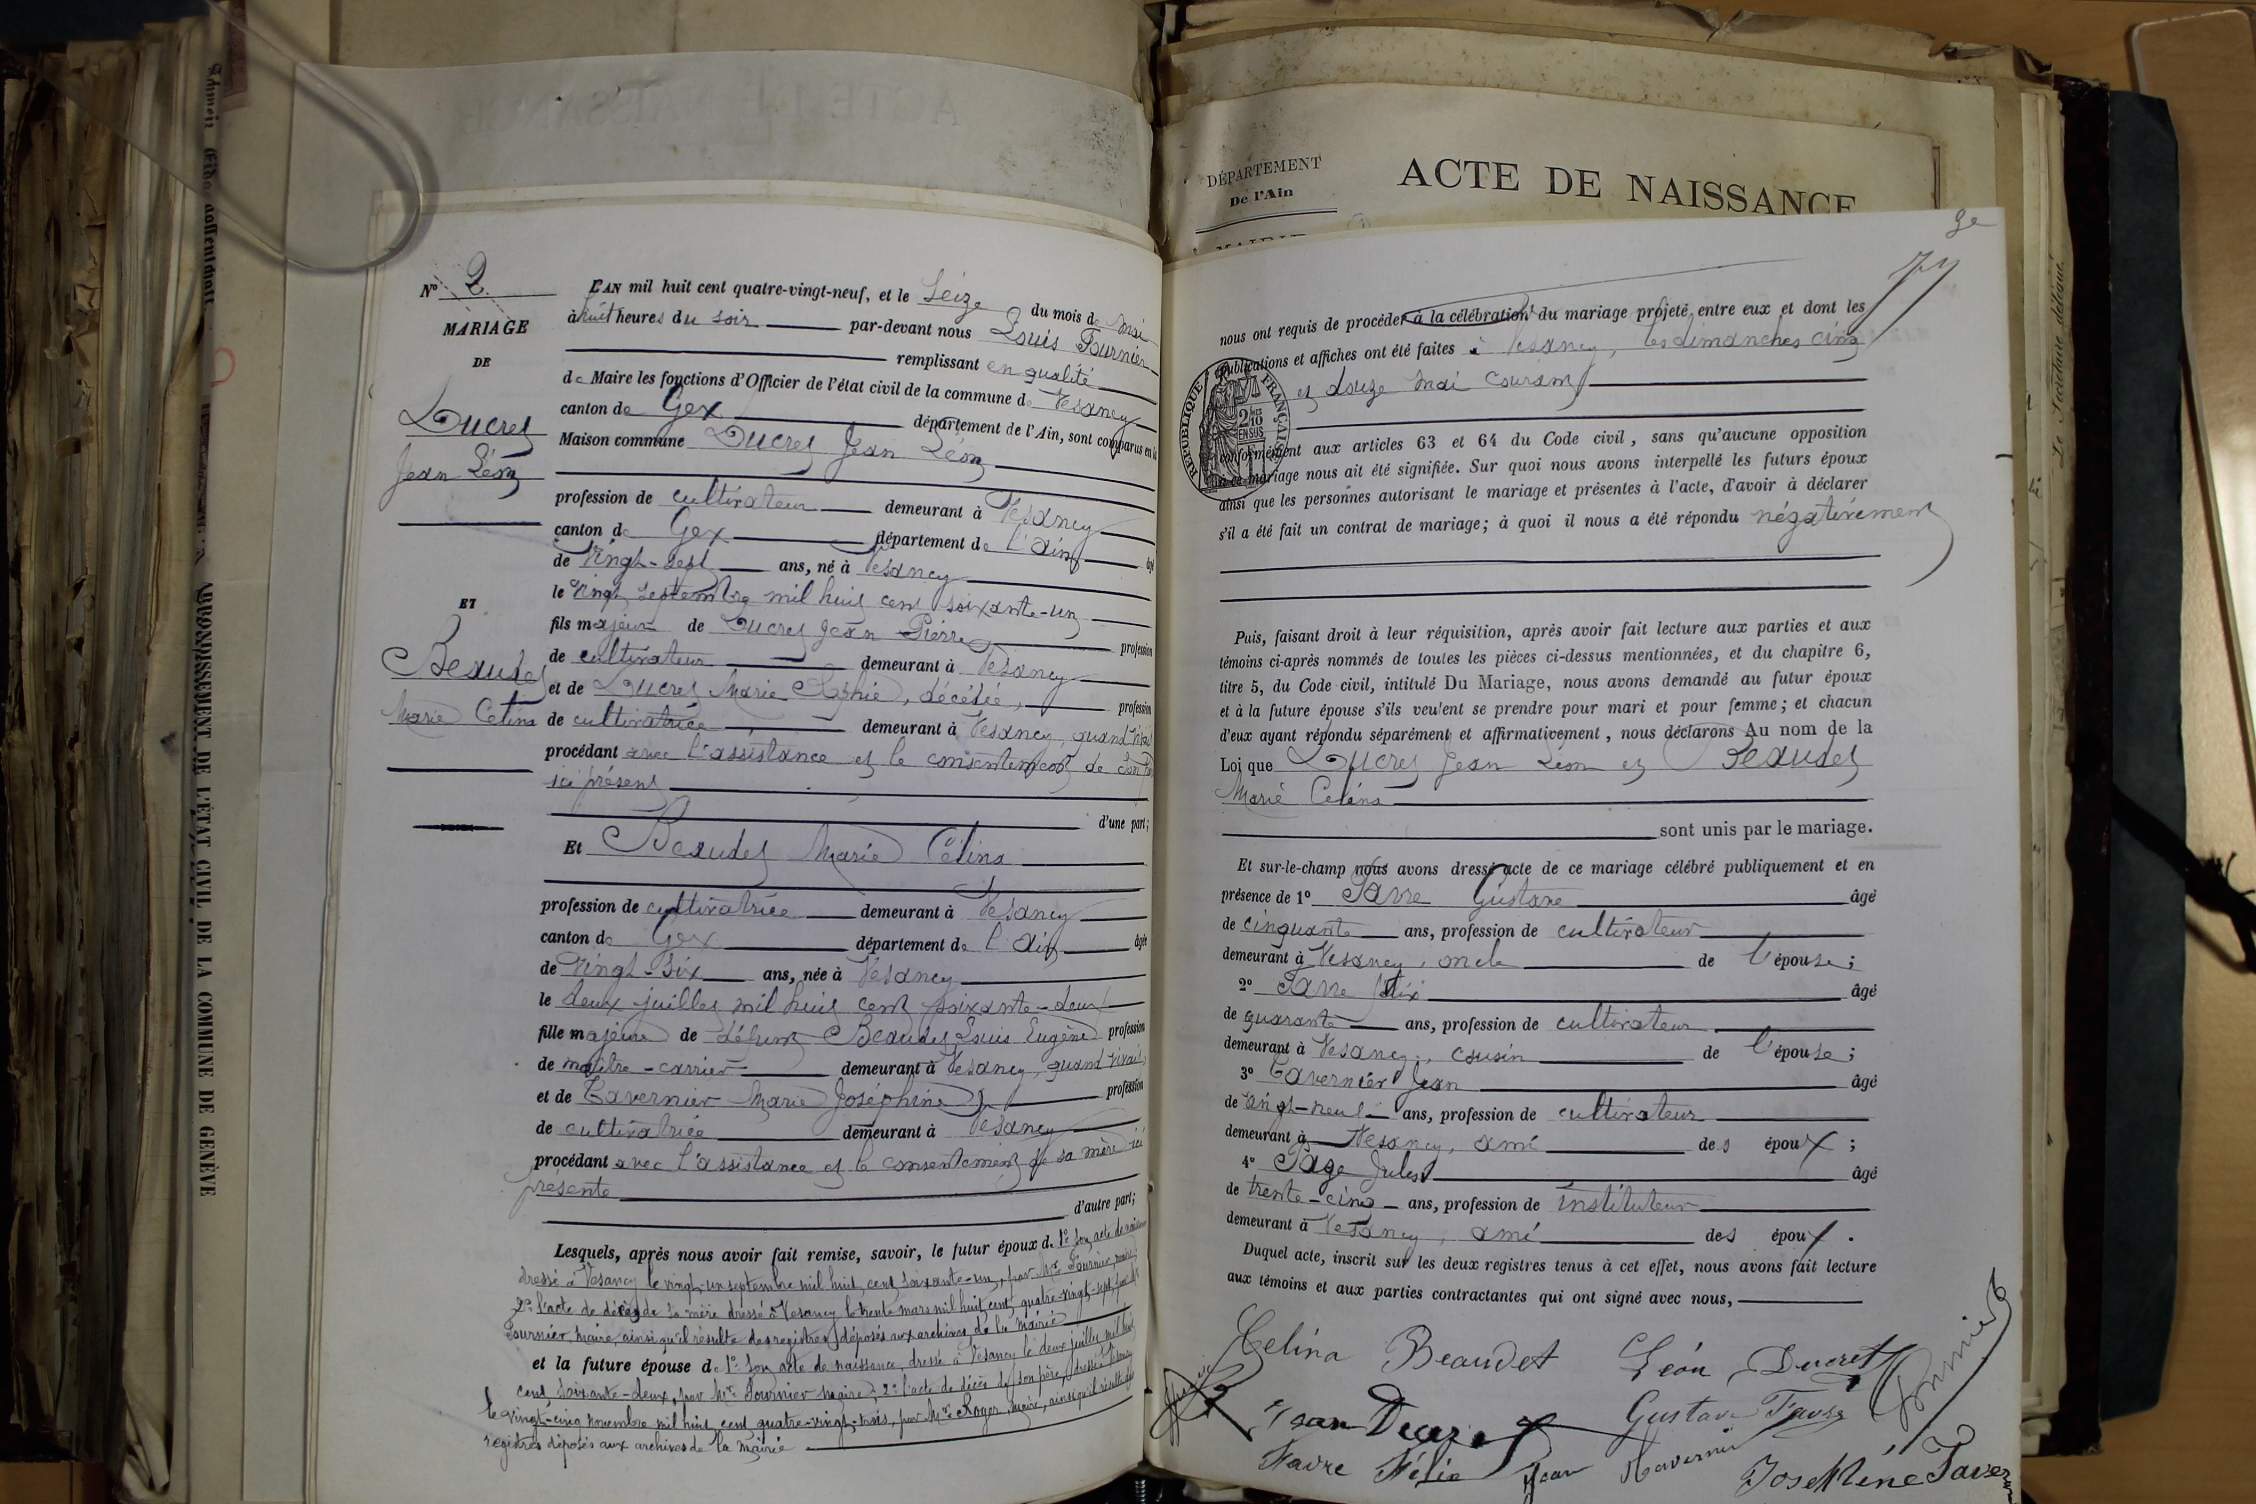 N° 2.
MARIAGE
DE
Ducret
Jean Léon
ET
Beaudet
Marie Célina
L'AN mil huit cent quatre-vingt-neuf, et le Seize du mois de mai
à huit heures du soir par-devant nous Louis Fournier
remplissant en qualité
de Maire les fonctions d'Officier de l'état civil de la commune de Vesancy
canton de Gex département de l'Ain, sont comparus en la
Maison commune Ducret Jean Léon
profession de cultivateur demeurant à Vesancy
canton de Gex département de l'Ain âgé
de vingt-sept ans, né à Vesancy
le vingt septembre mil huit cent soixante-un
fils majeur de Ducret Jean Pierre profession
de cultivateur demeurant à Vesancy
et de Ducret Marie Sophie, décédée, profession
de cultivatrice demeurant à Vesancy, quand vivait
procédant avec l'assistance et le consentement de son
ici présent
d'une part;
Et Beaudet Marie Célina
profession de cultivatrice demeurant à Vesancy
canton de Gex département de l'Ain âgée
de vingt-six ans, née à Vesancy
le deux juillet mil huit cent soixante-deux
fille majeure de défunt Beaudet Louis Eugène profession
de maître-carrier demeurant à Vesancy, quand vivait,
et de Tavernier Marie Joséphine profession
de cultivatrice demeurant à Vesancy
procédant avec l'assistance et le consentement de sa mère ici
présente
d'autre part;
Lesquels, après nous avoir fait remise, savoir, le futur époux de 1° son acte de naissance
dressé à Vesancy le vingt-un septembre mil huit cent soixante-un, par Mr Fournier, maire;
2° l'acte de décès de sa mère dressé à Vesancy le trente mars mil huit cent quatre-vingt-sept, par Mr
Fournier, maire, ainsi qu'il résulte des registres déposés aux archives de la mairie
et la future épouse de 1° son acte de naissance, dressé à Vesancy le deux juillet mil huit
cent soixante-deux, par Mr Fournier maire; 2° l'acte de décès de son père, dressé à Vesancy
le vingt-cinq novembre mil huit cent quatre-vingt-trois, par Mr Roger, maire, ainsi qu'il résulte des
registres déposés aux archives de la mairie
ARRONDISSEMENT DE L'ÉTAT CIVIL DE LA COMMUNE DE GENÈVE
DÉPARTEMENT
De l'Ain
ACTE DE NAISSANCE
nous ont requis de procéder à la célébration du mariage projeté entre eux et dont les
publications et affiches ont été faites à Vesancy, les dimanches cinq
et douze mai courant
RÉPUBLIQUE FRANÇAISE
conformément aux articles 63 et 64 du Code civil, sans qu'aucune opposition
à ce mariage nous ait été signifiée. Sur quoi nous avons interpellé les futurs époux
ainsi que les personnes autorisant le mariage et présentes à l'acte, d'avoir à déclarer
s'il a été fait un contrat de mariage; à quoi il nous a été répondu négativement
Puis, faisant droit à leur réquisition, après avoir fait lecture aux parties et aux
témoins ci-après nommés de toutes les pièces ci-dessus mentionnées, et du chapitre 6,
titre 5, du Code civil, intitulé Du Mariage, nous avons demandé au futur époux
et à la future épouse s'ils veulent se prendre pour mari et pour femme; et chacun
d'eux ayant répondu séparément et affirmativement, nous déclarons Au nom de la
Loi que Ducret Jean Léon et Beaudet
Marie Célina
sont unis par le mariage.
Et sur-le-champ nous avons dressé acte de ce mariage célébré publiquement et en
présence de 1° Favre Gustave âgé
de cinquante ans, profession de cultivateur
demeurant à Vesancy, oncle de l'épouse;
2° Favre Félix âgé
de quarante ans, profession de cultivateur
demeurant à Vesancy, cousin de l'épouse;
3° Tavernier Jean âgé
de vingt-neuf ans, profession de cultivateur
demeurant à Vesancy, ami des époux;
4° Page Jules âgé
de trente-cinq ans, profession de instituteur
demeurant à Vesancy, ami des époux.
Duquel acte, inscrit sur les deux registres tenus à cet effet, nous avons fait lecture
aux témoins et aux parties contractantes qui ont signé avec nous,
Celina Beaudet Léon Ducret
Fournier
Jean Ducret Gustave Favre
Favre Félix Jean Tavernier